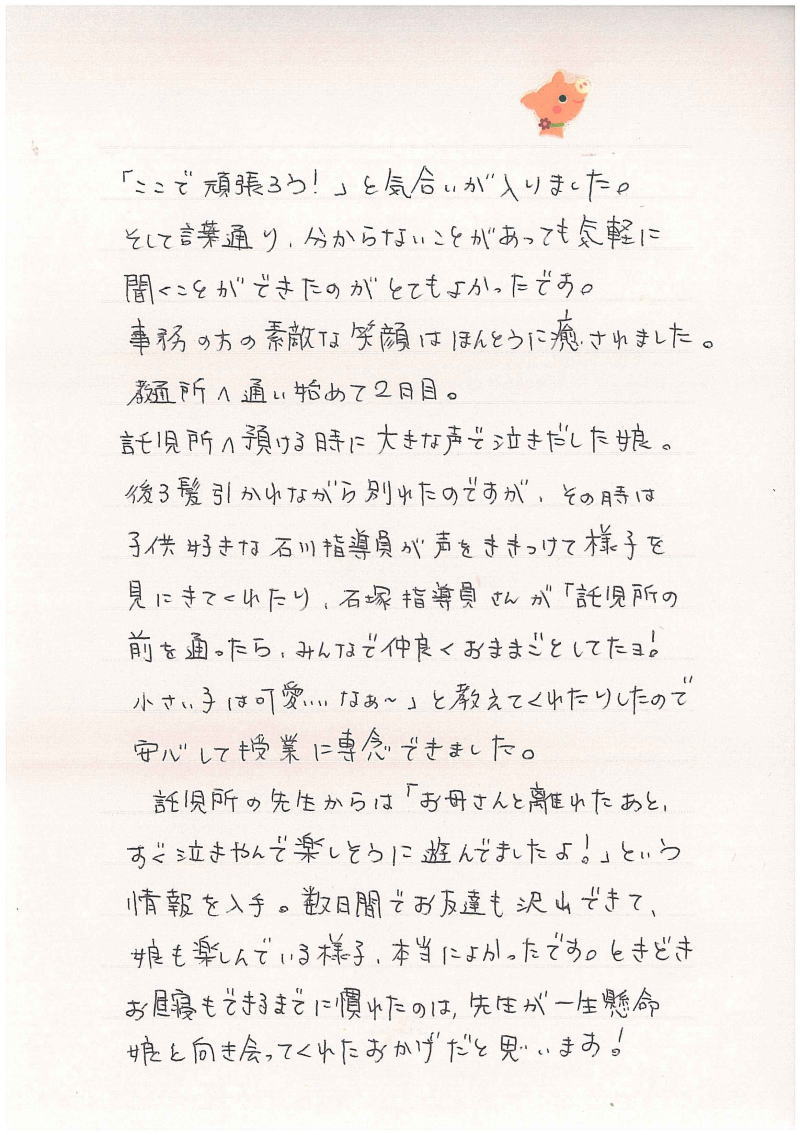 「ここで頑張ろう!」と気合いが入りました。
そして言葉通り、分からないことがあっても気軽に
聞くことができたのがとてもよかったです。
事務の方の素敵な笑顔はほんとうに癒されました。
教習所へ通い始めて2日目。
託児所へ預ける時に大きな声で泣きだした娘。
後ろ髪引かれながら別れたのですが、その時は
子供好きな石川指導員が声をききつけて様子を
見にきてくれたり、石塚指導員さんが「託児所の
前を通ったら、みんなで仲良くおままごとしてたヨ!
小さい子は可愛いいなぁ~」と教えてくれたりしたので
安心しても授業に専念できました。
託児所の先生からは「お母さんと離れたあと、
すぐ泣きやんで楽しそうに遊んでましたよ!」という
情報を入手。数日間でお友達も沢山できて、
娘も楽しんでいる様子、本当によかったです。ときどき
お昼寝もできるまでに慣れたのは、先生が一生懸命
娘と向き合ってくれたおかげだと思います!